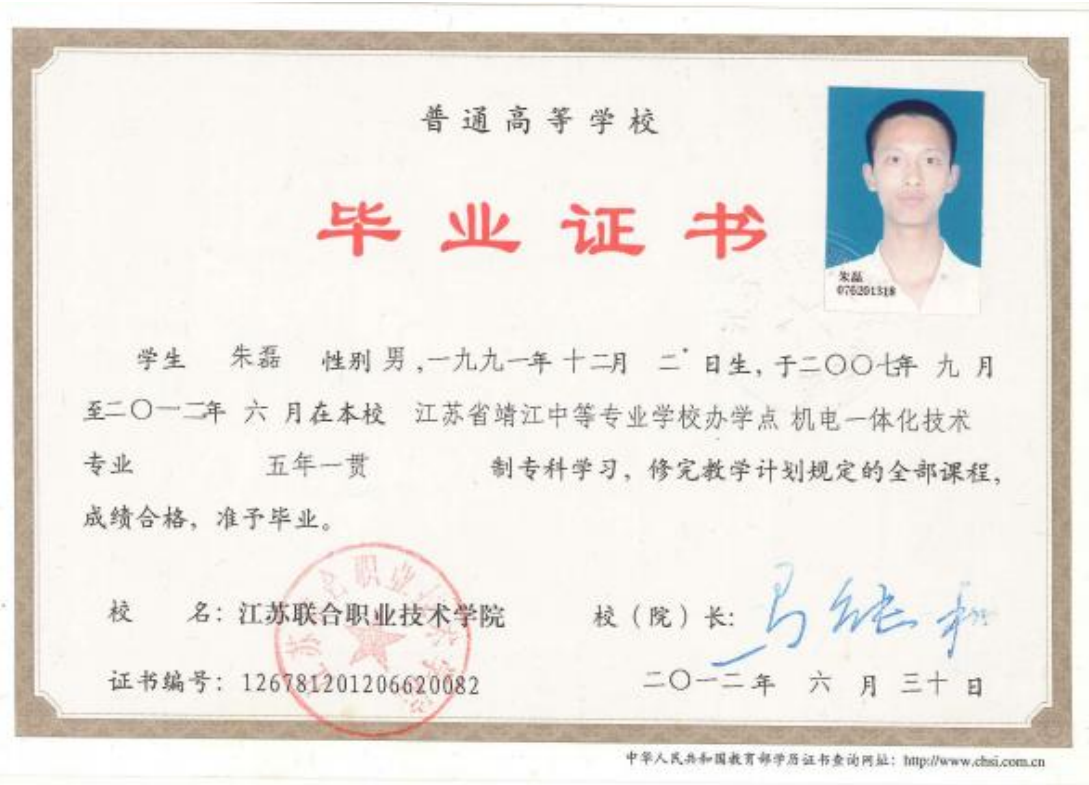 普通高等学校
毕业证书
朱磊
076201318
学生 朱磊 性别 男,一九九一年 十二月 二 日生, 于二〇〇七年 九 月
至二〇一二年 六 月在本校 江苏省靖江中等专业学校办学点 机电一体化技术
专业 五年一贯 制专科学习, 修完教学计划规定的全部课程,
成绩合格, 准予毕业。
校 名: 江苏联合职业技术学院 校(院)长:
证书编号: 126781201206620082 二〇一二年 六 月 三十 日
中华人民共和国教育部学历证书查询网址: http://www.chsi.com.cn